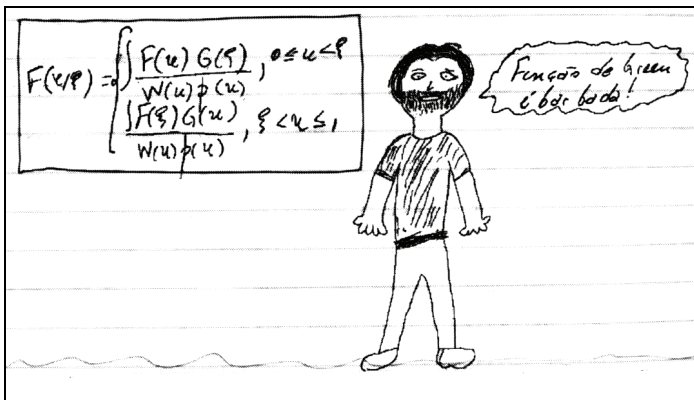 F(x,ξ) = { ∫ F(x) G(ξ) / W(x) p(x) , 0 ≤ x < ξ
∫ F(ξ) G(x) / W(x) p(x) , ξ < x ≤ 1
Função de Green
é barbada!